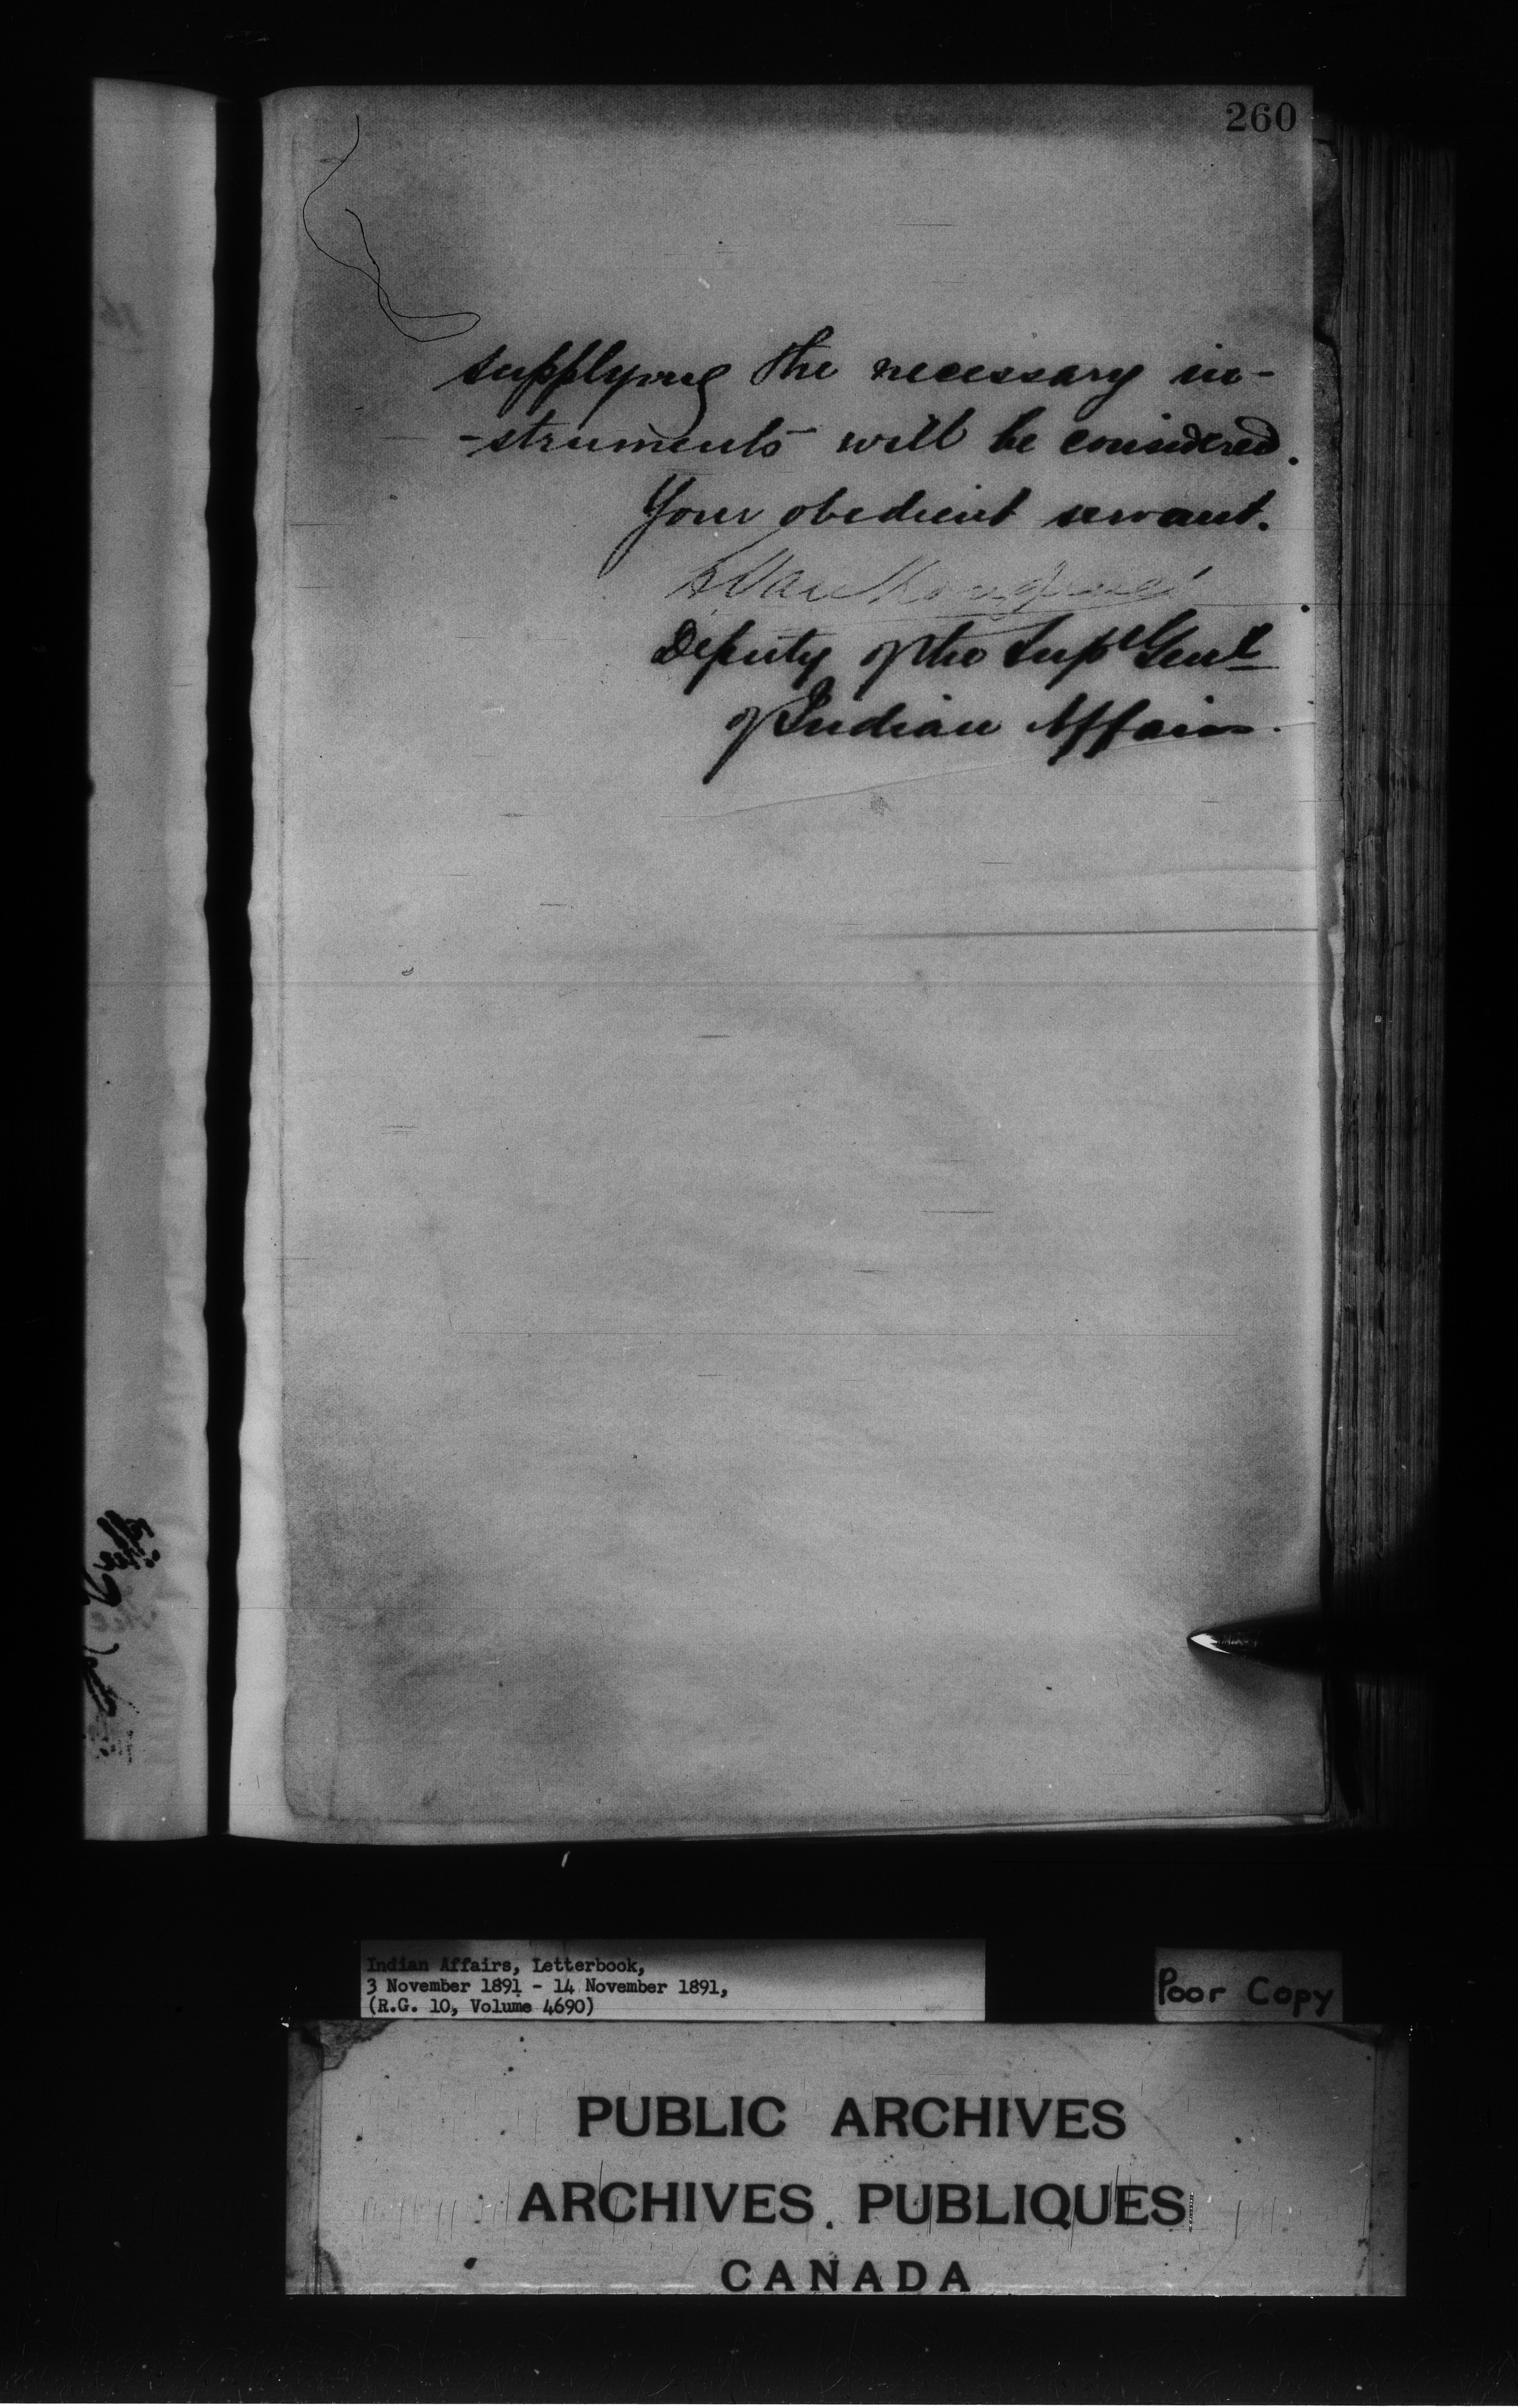 260
supplying the necessary in-
-struments will be considered.
Your obedient servant.
L VanKoughnet
Deputy of the Supt Genl
of Indian Affairs.
Indian Affairs, Letterbook,
3 November 1891 - 14 November 1891,
(R.G. 10, Volume 4690)
Poor Copy
PUBLIC ARCHIVES
ARCHIVES PUBLIQUES
CANADA